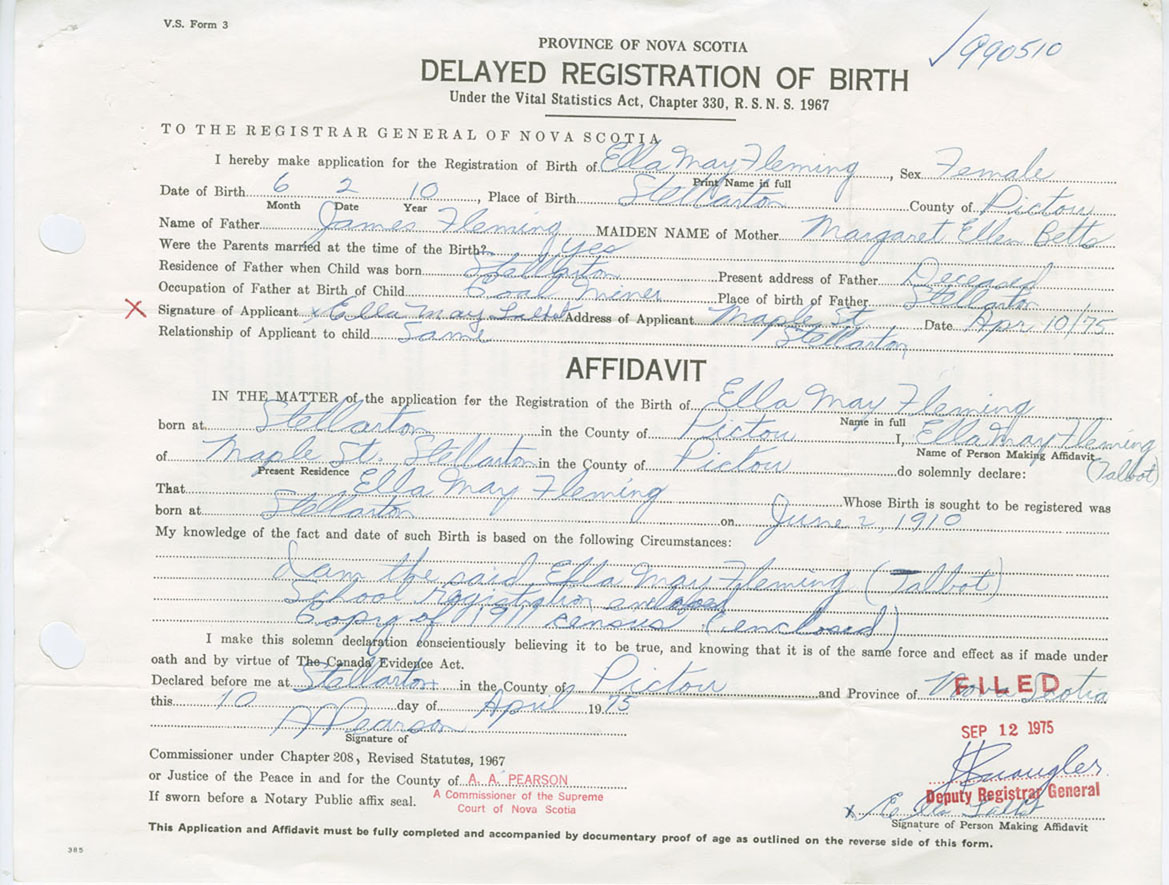 V.S. Form 3
1990510
PROVINCE OF NOVA SCOTIA
DELAYED REGISTRATION OF BIRTH
Under the Vital Statistics Act, Chapter 330, R.S.N.S. 1967
TO THE REGISTRAR GENERAL OF NOVA SCOTIA
I hereby make application for the Registration of Birth of Ella May Fleming, Sex Female
Print Name in full
Date of Birth 6 2 10, Place of Birth Stellarton County of Pictou
Month Date Year
Name of Father James Fleming MAIDEN NAME of Mother Margaret Ellen Betts
Were the Parents married at the time of the Birth? Yes
Residence of Father when Child was born Stellarton Present address of Father Deceased
Occupation of Father at Birth of Child Coal Miner Place of birth of Father Stellarton
X Signature of Applicant x Ella May Talbot Address of Applicant Maple St. Date Apr 10/75
Relationship of Applicant to child Same Stellarton
AFFIDAVIT
IN THE MATTER of the application for the Registration of the Birth of Ella May Fleming
Name in full
born at Stellarton in the County of Pictou I, Ella May Fleming
Name of Person Making Affidavit
(Talbot)
of Maple St. Stellarton in the County of Pictou do solemnly declare:
Present Residence
That Ella May Fleming Whose Birth is sought to be registered was
born at Stellarton on June 2, 1910
My knowledge of the fact and date of such Birth is based on the following Circumstances:
I am the said Ella May Fleming (Talbot)
School registration enclosed
Copy of 1911 census (enclosed)
I make this solemn declaration conscientiously believing it to be true, and knowing that it is of the same force and effect as if made under
oath and by virtue of The Canada Evidence Act.
Declared before me at Stellarton in the County of Pictou and Province of Nova Scotia
FILED
this 10 day of April 1975
SEP 12 1975
A A Pearson
Signature of
Commissioner under Chapter 208, Revised Statutes, 1967
or Justice of the Peace in and for the County of A. A. PEARSON
A Commissioner of the Supreme
Court of Nova Scotia
If sworn before a Notary Public affix seal.
Deputy Registrar General
x Ella Talbot
Signature of Person Making Affidavit
This Application and Affidavit must be fully completed and accompanied by documentary proof of age as outlined on the reverse side of this form.
385